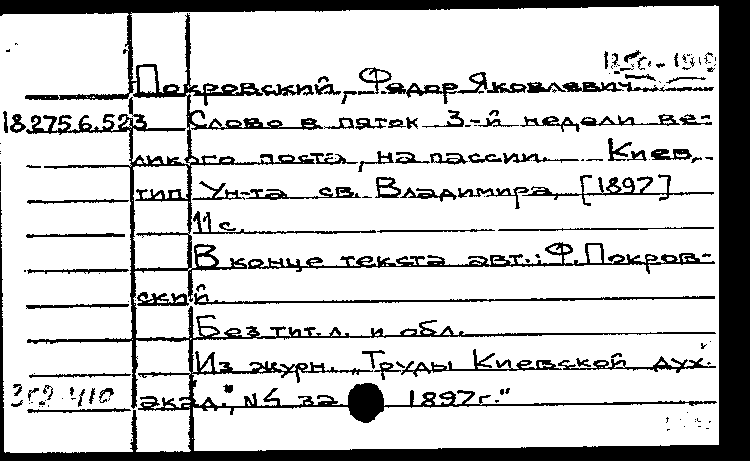 1850-1919
Покровский, Федор Яковлевич.
18.275.6.523 Слово в пяток 3-й недели ве-
ликого поста, на пассии. Киев,
тип. Ун-та св. Владимира, [1897]
11 с.
В конце текста авт.: Ф. Покров-
ский.
Без тит. л. и обл.
Из журн. „Труды Киевской дух.
акад.", N4 за 1897г."